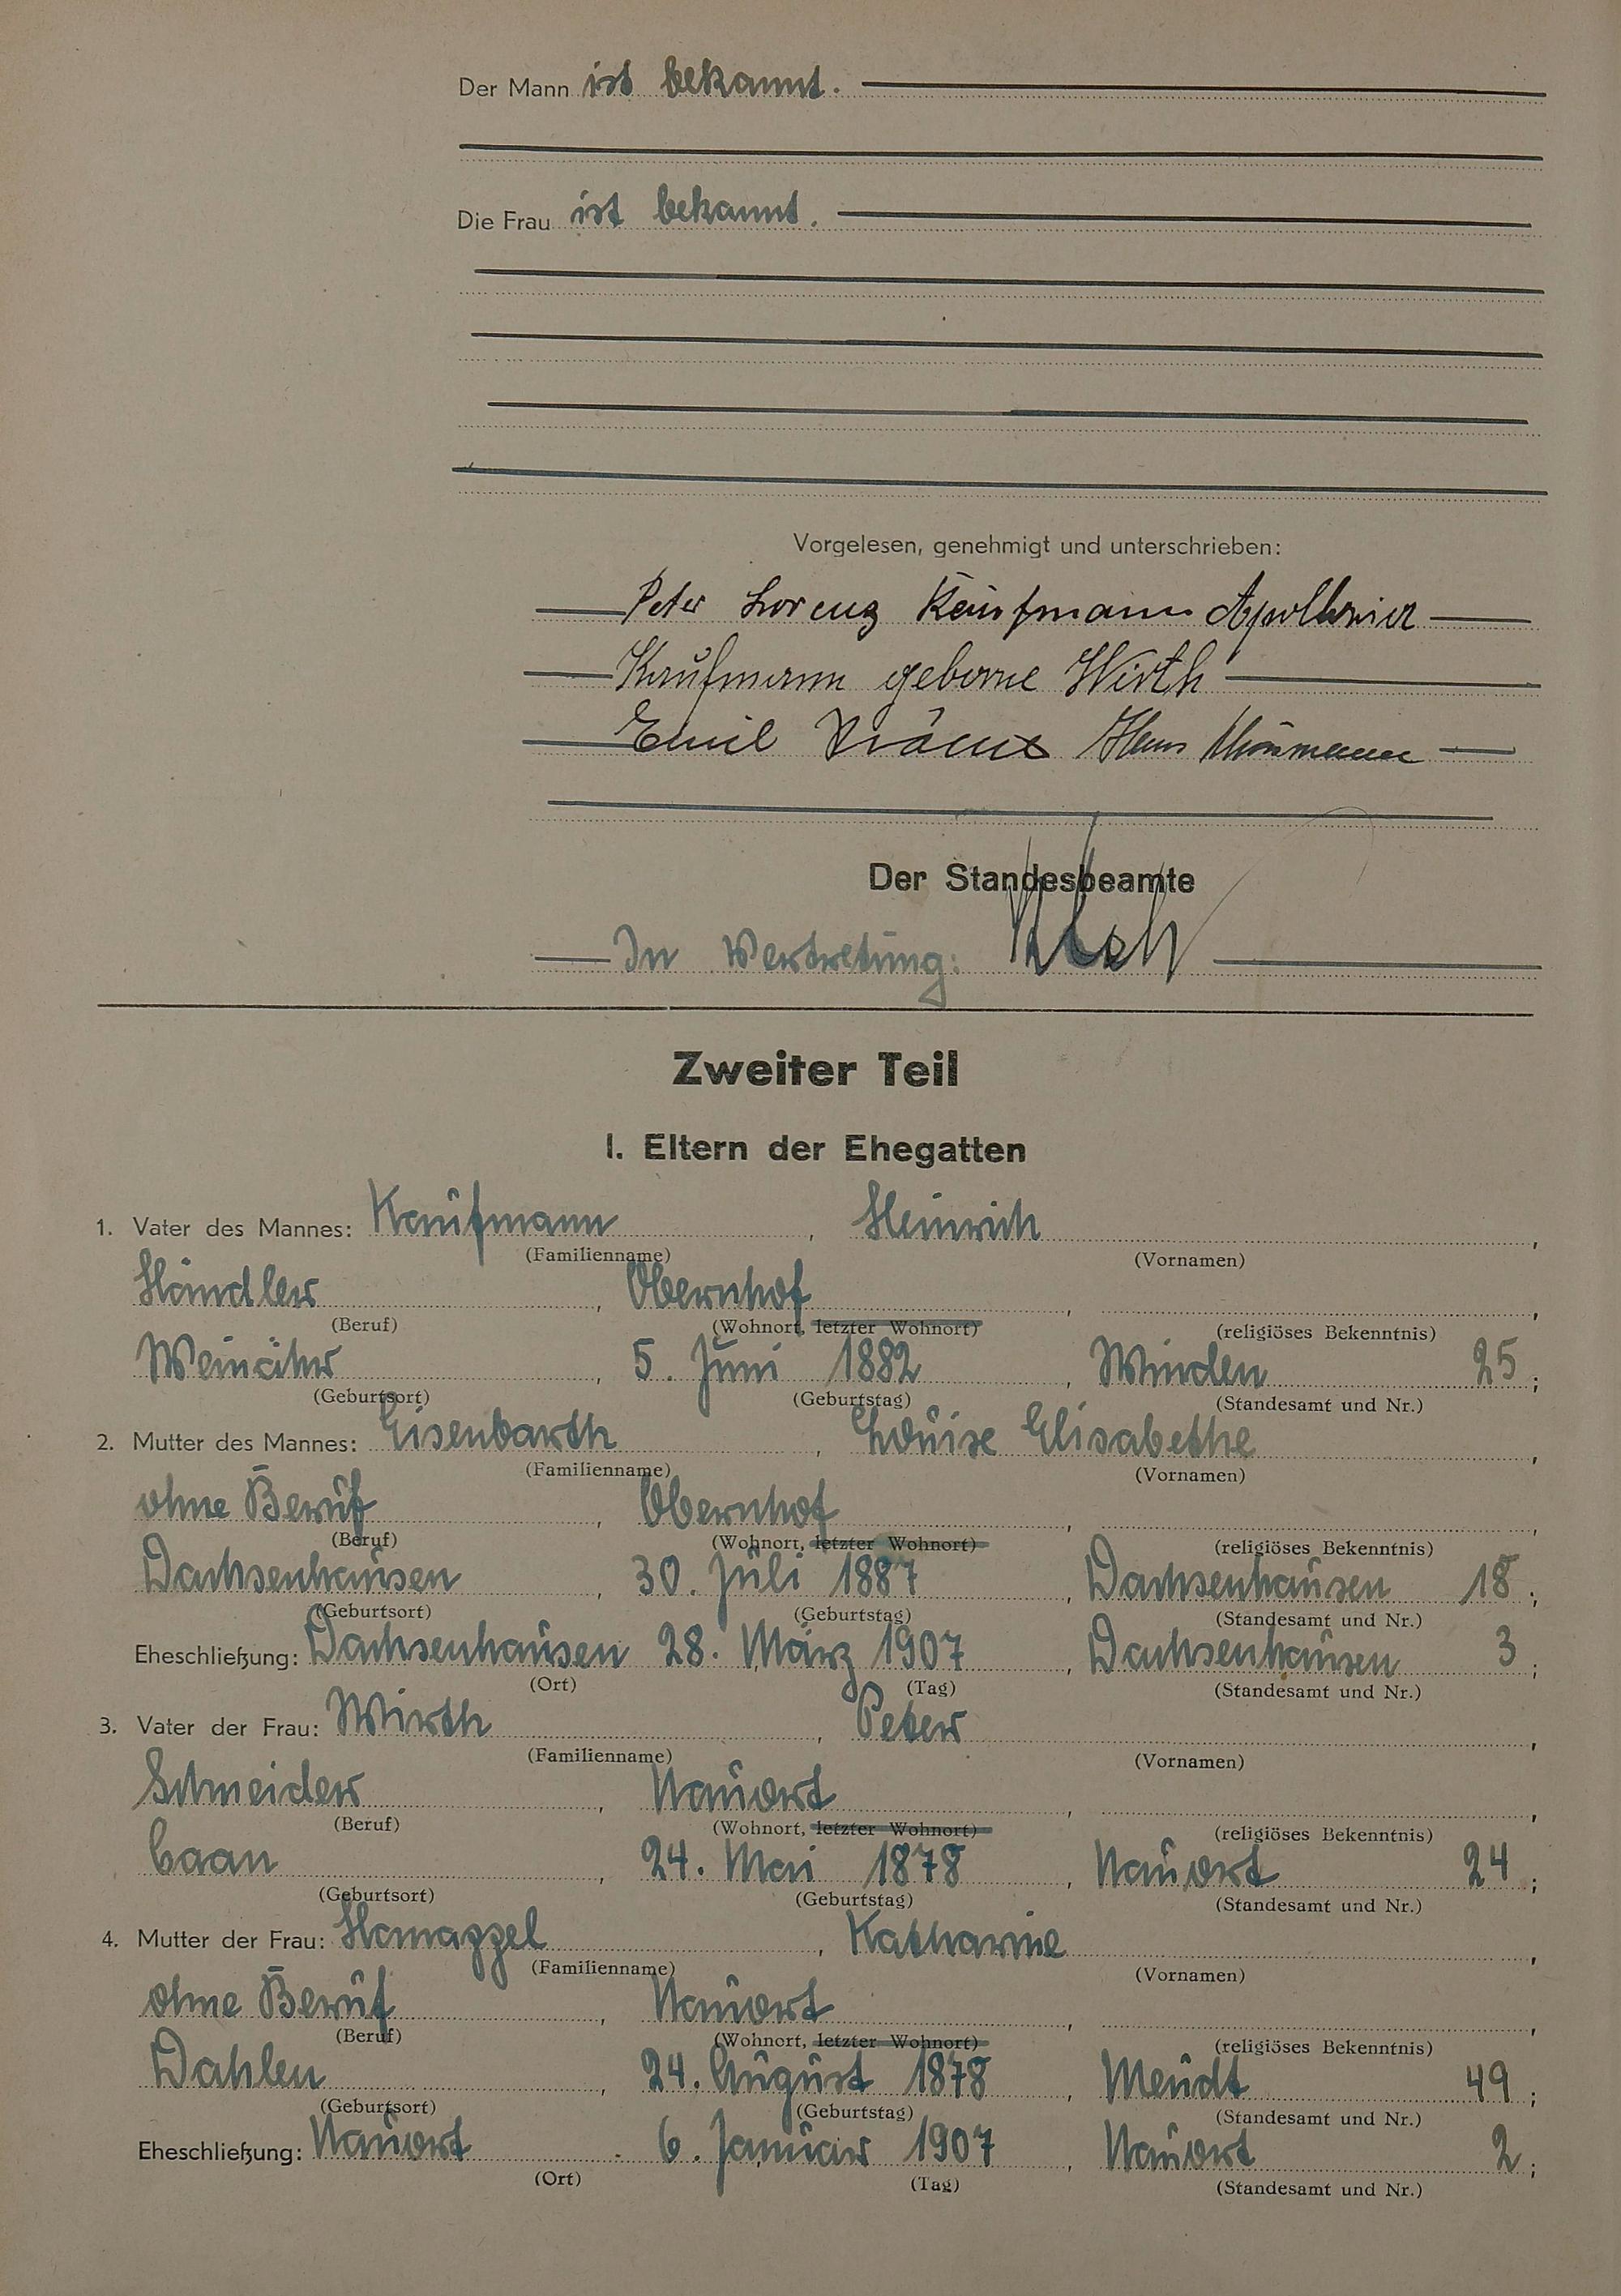 Der Mann ist bekannt.
Die Frau ist bekannt.
Vorgelesen, genehmigt und unterschrieben:
Peter Lorenz Kaufmann Apollonia
Kaufmann geborne Wirth
Emil Hans
Der Standesbeamte
In Vertretung:
Zweiter Teil
I. Eltern der Ehegatten
1. Vater des Mannes: Kaufmann, Heinrich,
(Familienname) (Vornamen)
Händler, Obernhof, ,
(Beruf) (Wohnort, letzter Wohnort) (religiöses Bekenntnis)
Weinähr, 5. Juni 1882, Winden 25;
(Geburtsort) (Geburtstag) (Standesamt und Nr.)
2. Mutter des Mannes: Eisenbarth, Louise Elisabethe,
(Familienname) (Vornamen)
ohne Beruf, Obernhof, ,
(Beruf) (Wohnort, letzter Wohnort) (religiöses Bekenntnis)
Dachsenhausen, 30. Juli 1887, Dachsenhausen 18;
(Geburtsort) (Geburtstag) (Standesamt und Nr.)
Eheschließung: Dachsenhausen 28. März 1907, Dachsenhausen 3;
(Ort) (Tag) (Standesamt und Nr.)
3. Vater der Frau: Wirth, Peter,
(Familienname) (Vornamen)
Schneider, Nauort, ,
(Beruf) (Wohnort, letzter Wohnort) (religiöses Bekenntnis)
Caan, 24. Mai 1878, Nauort 24;
(Geburtsort) (Geburtstag) (Standesamt und Nr.)
4. Mutter der Frau: Hanappel, Katharine,
(Familienname) (Vornamen)
ohne Beruf, Nauort, ,
(Beruf) (Wohnort, letzter Wohnort) (religiöses Bekenntnis)
Dahlen, 24. August 1878, Meudt 49;
(Geburtsort) (Geburtstag) (Standesamt und Nr.)
Eheschließung: Nauort. 6. Januar 1907, Nauort 2;
(Ort) (Tag) (Standesamt und Nr.)